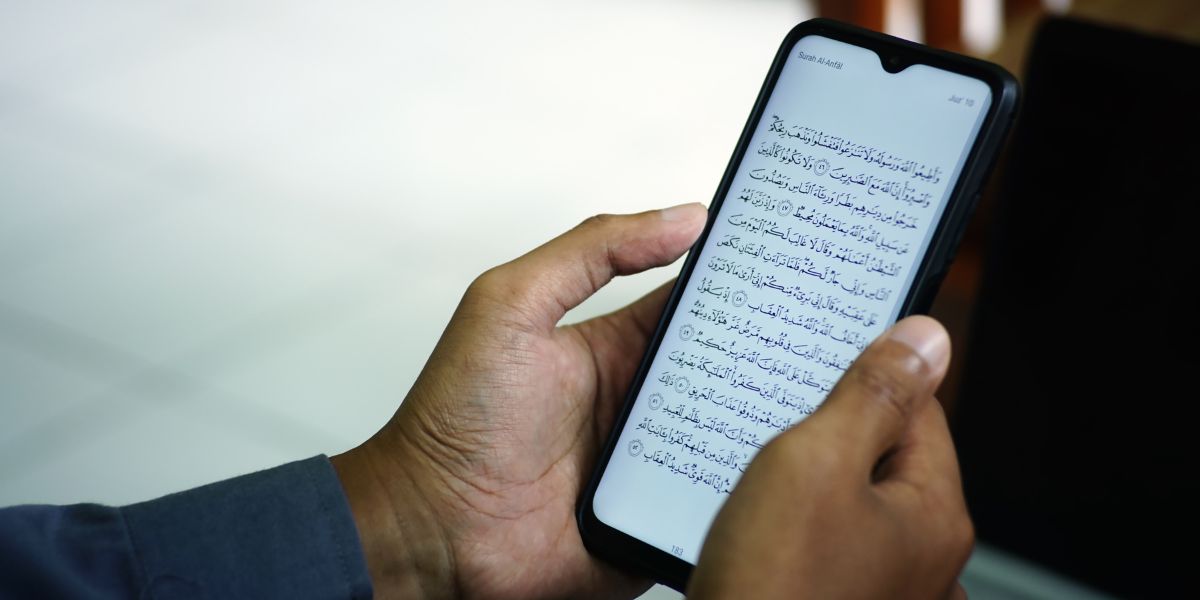 Surah Al-Anfāl
Juz' 10
وَأَطِيعُوا۟ ٱللَّهَ وَرَسُولَهُۥ وَلَا تَنَـٰزَعُوا۟ فَتَفْشَلُوا۟ وَتَذْهَبَ رِيحُكُمْ
وَٱصْبِرُوٓا۟ إِنَّ ٱللَّهَ مَعَ ٱلصَّـٰبِرِينَ ٤٦ وَلَا تَكُونُوا۟ كَٱلَّذِينَ
خَرَجُوا۟ مِن دِيَـٰرِهِم بَطَرًا وَرِئَآءَ ٱلنَّاسِ وَيَصُدُّونَ
عَن سَبِيلِ ٱللَّهِ وَٱللَّهُ بِمَا يَعْمَلُونَ مُحِيطٌ ٤٧ وَإِذْ زَيَّنَ لَهُمُ
ٱلشَّيْطَـٰنُ أَعْمَـٰلَهُمْ وَقَالَ لَا غَالِبَ لَكُمُ ٱلْيَوْمَ مِنَ
ٱلنَّاسِ وَإِنِّى جَارٌ لَّكُمْ فَلَمَّا تَرَآءَتِ ٱلْفِئَتَانِ نَكَصَ
عَلَىٰ عَقِبَيْهِ وَقَالَ إِنِّى بَرِىٓءٌ مِّنكُمْ إِنِّىٓ أَرَىٰ مَا لَا تَرَوْنَ
إِنِّىٓ أَخَافُ ٱللَّهَ وَٱللَّهُ شَدِيدُ ٱلْعِقَابِ ٤٨ إِذْ يَقُولُ
وَٱلَّذِينَ فِى قُلُوبِهِم مَّرَضٌ غَرَّ هَـٰٓؤُلَآءِ دِينُهُمْ
عَلَى ٱللَّهِ فَإِنَّ ٱللَّهَ عَزِيزٌ حَكِيمٌ ٤٩
إِذْ يَتَوَفَّى ٱلَّذِينَ كَفَرُوا۟ ٱلْمَلَـٰٓئِكَةُ يَضْرِبُونَ
وَذُوقُوا۟ عَذَابَ ٱلْحَرِيقِ ٥٠ ذَٰلِكَ
وَأَنَّ ٱللَّهَ لَيْسَ بِظَلَّـٰمٍ لِّلْعَبِيدِ ٥١
وَٱلَّذِينَ مِن قَبْلِهِمْ كَفَرُوا۟ بِـَٔايَـٰتِ ٱللَّهِ
إِنَّ ٱللَّهَ قَوِىٌّ شَدِيدُ ٱلْعِقَابِ ٥٢
183